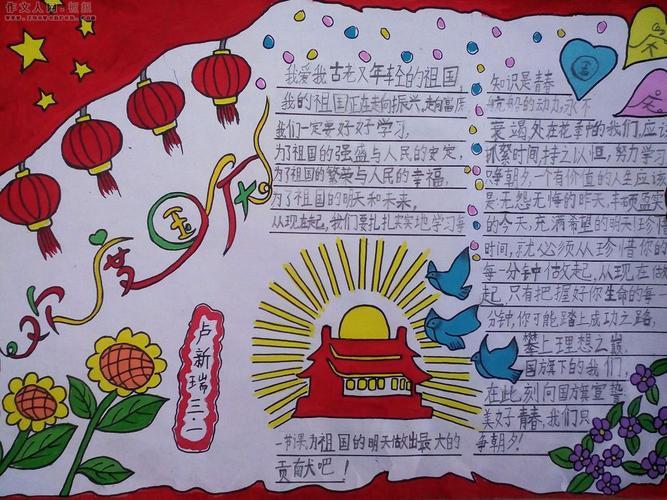 作文人网·恒组
www.zuowenren.com
欢度国庆
卢新瑞三.
我爱我古老又年轻的祖国,
我的祖国正在走向振兴,走向富庶
我们一定要好好学习,
为了祖国的强盛与人民的安定,
为了祖国的繁荣与人民的幸福,
为了祖国的明天和未来,
从现在起,我们要扎扎实实地学习每
一节课,为祖国的明天做出最大的
贡献吧!
知识是青春
航船的动力,永不
衰竭处在花季的我们,应
抓紧时间,持之以恒,努力学习
争朝夕一个有价值的人生应该
是:无怨无悔的昨天,丰硕盈实
的今天,充满希望的明天!珍惜
时间,就必须从珍惜你的
每一分钟做起,从现在做
起,只有把握好你生命的每一
分钟,你可能踏上成功之路,
攀上理想之巅.
国旗下的我们,
在此刻向国旗宣誓
美好青春,我们只
争朝夕!